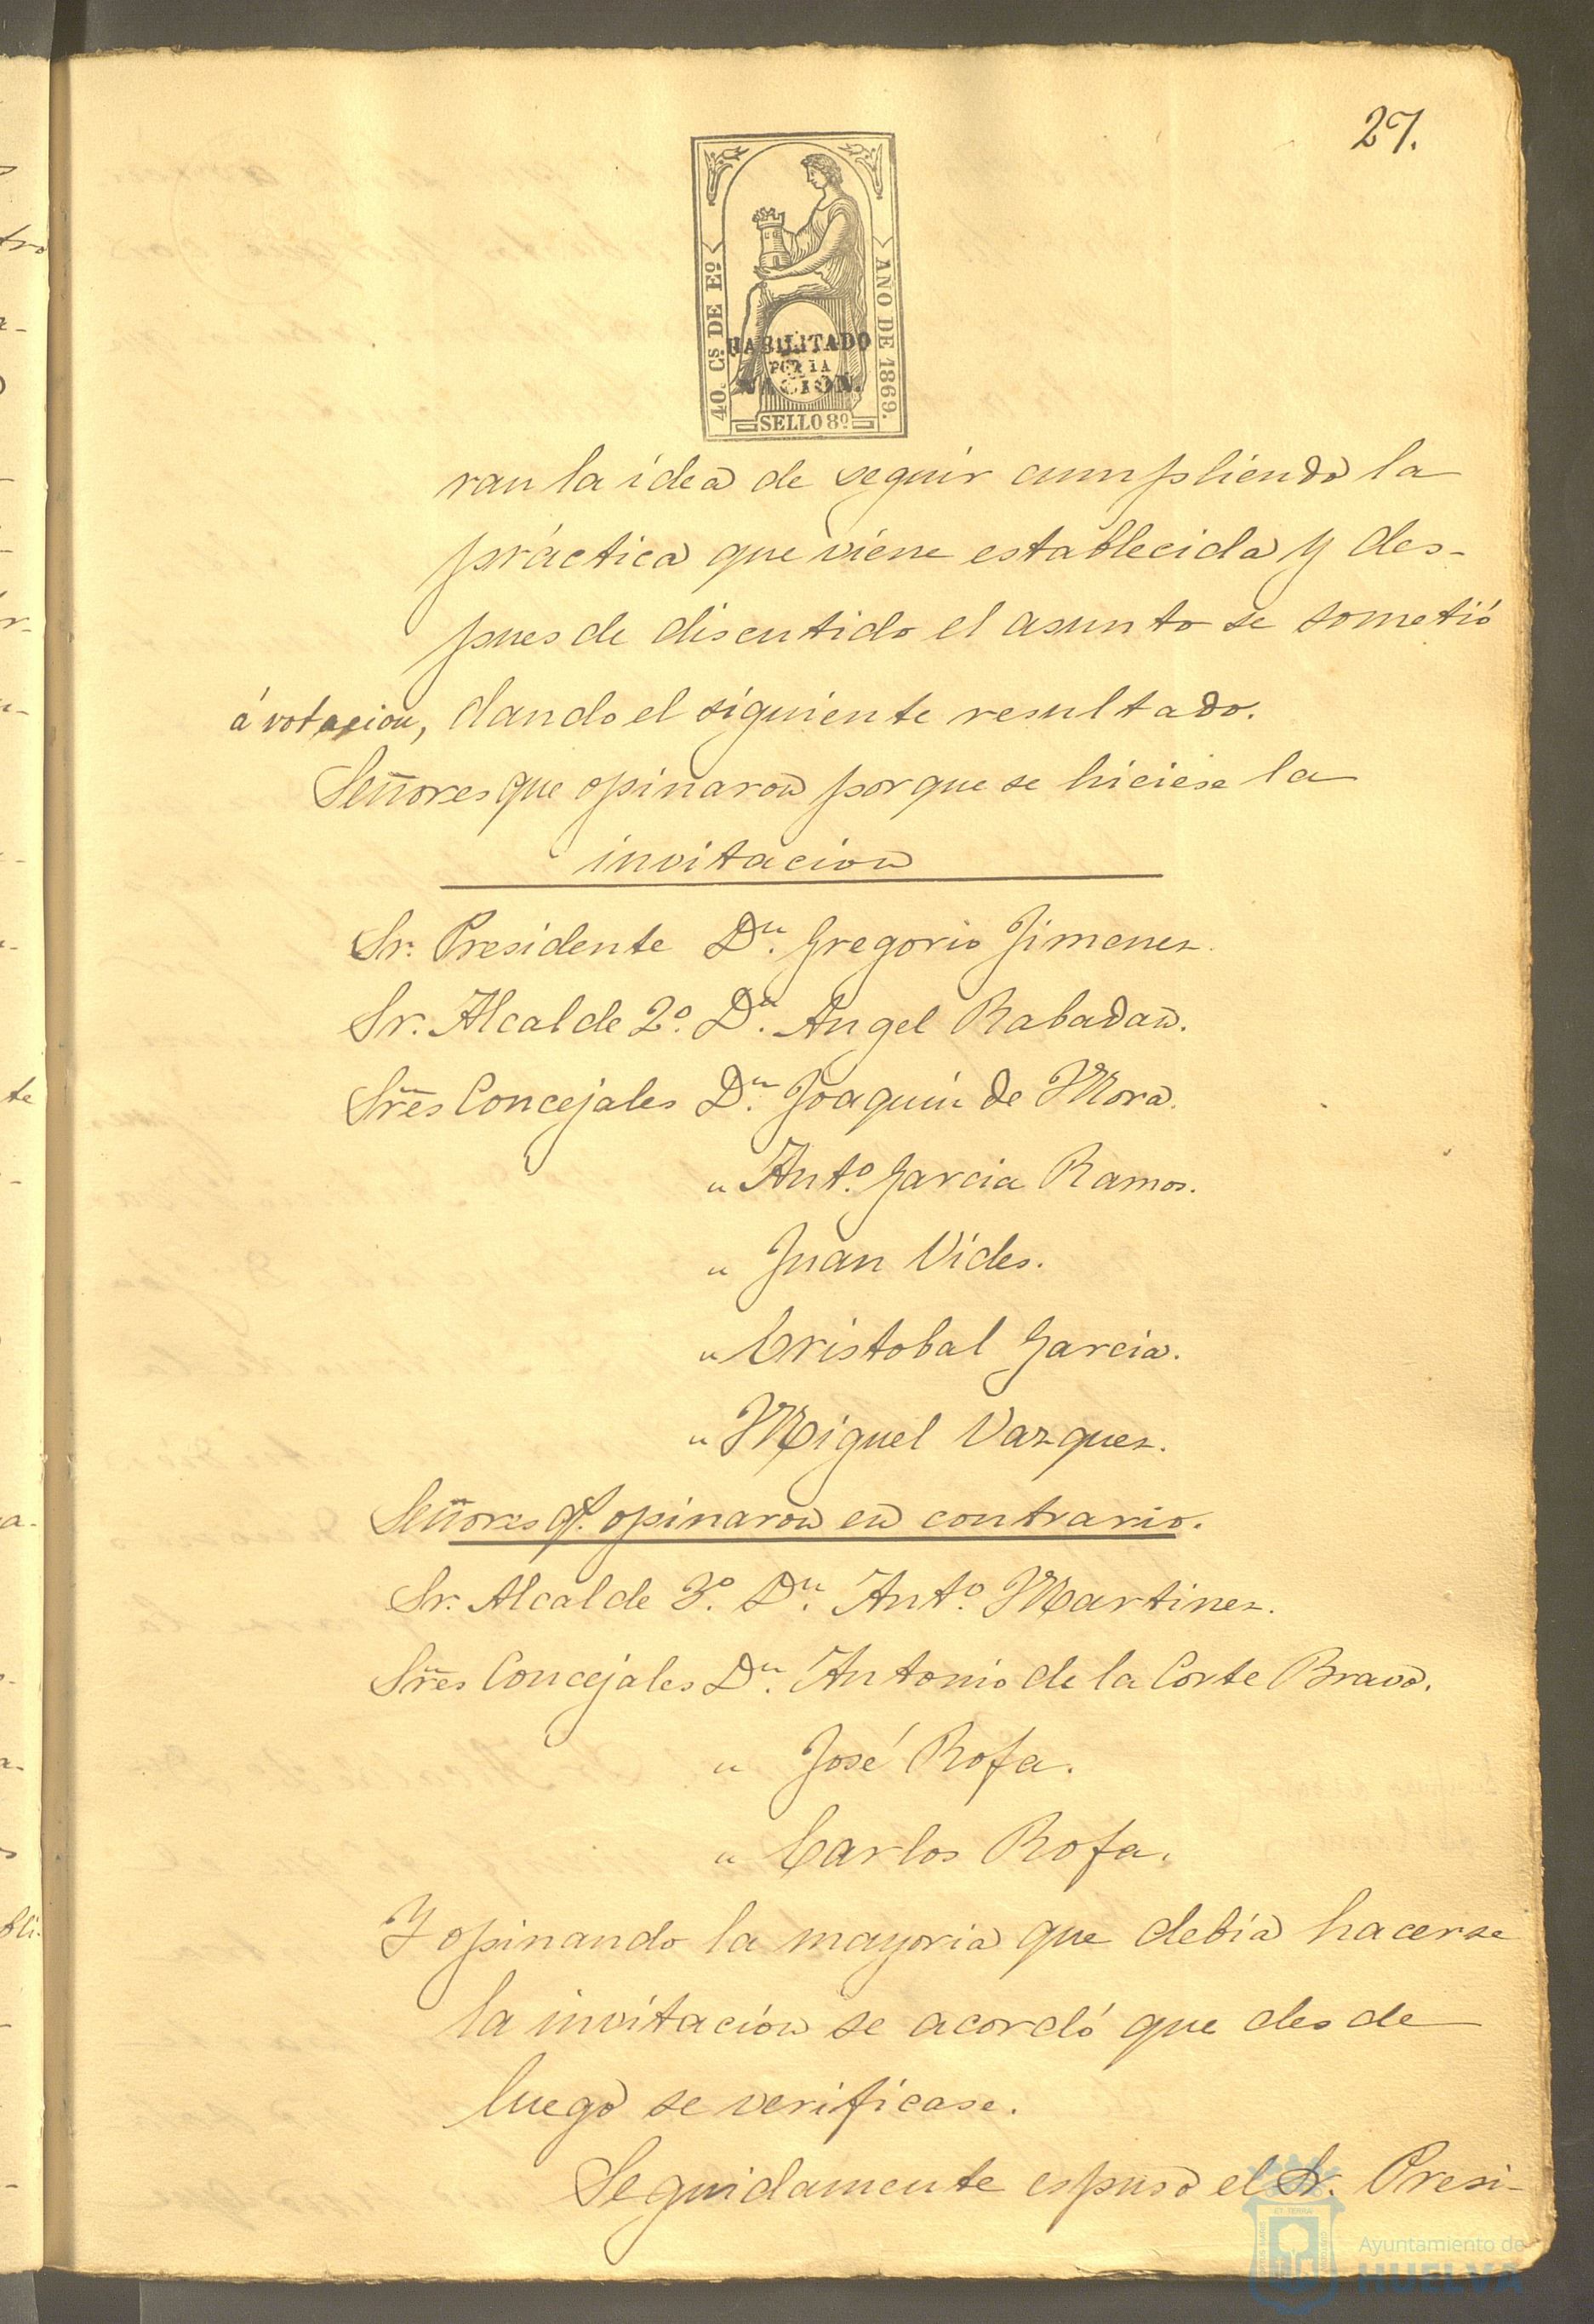 27.
40. Cs. DE Eº
AÑO DE 1869.
HABILITADO
POR LA
NACION.
SELLO 8º
ran la idea de seguir cumpliendo la
práctica que viene establecida y des-
pues de discutido el asunto se sometió
á votacion, dando el siguiente resultado.
Señores que opinaron porque se hiciese la
invitacion
Sr. Presidente Dn. Gregorio Jimenez.
Sr. Alcalde 2º. Dn. Angel Rabadan.
Sres Concejales Dn. Joaquin de Mora.
" Antº. Garcia Ramos.
" Juan Vides.
" Cristobal Garcia.
" Miguel Vazquez.
Señores q. opinaron en contrario.
Sr. Alcalde 3º. Dn. Antº. Martinez.
Sres Concejales Dn. Antonio de la Corte Bravo.
" José Rofa.
" Carlos Rofa.
Y opinando la mayoria que debía hacerse
la invitación se acordó que desde
luego se verificase.
Seguidamente espuso el Sr. Presi-
Ayuntamiento de
HUELVA